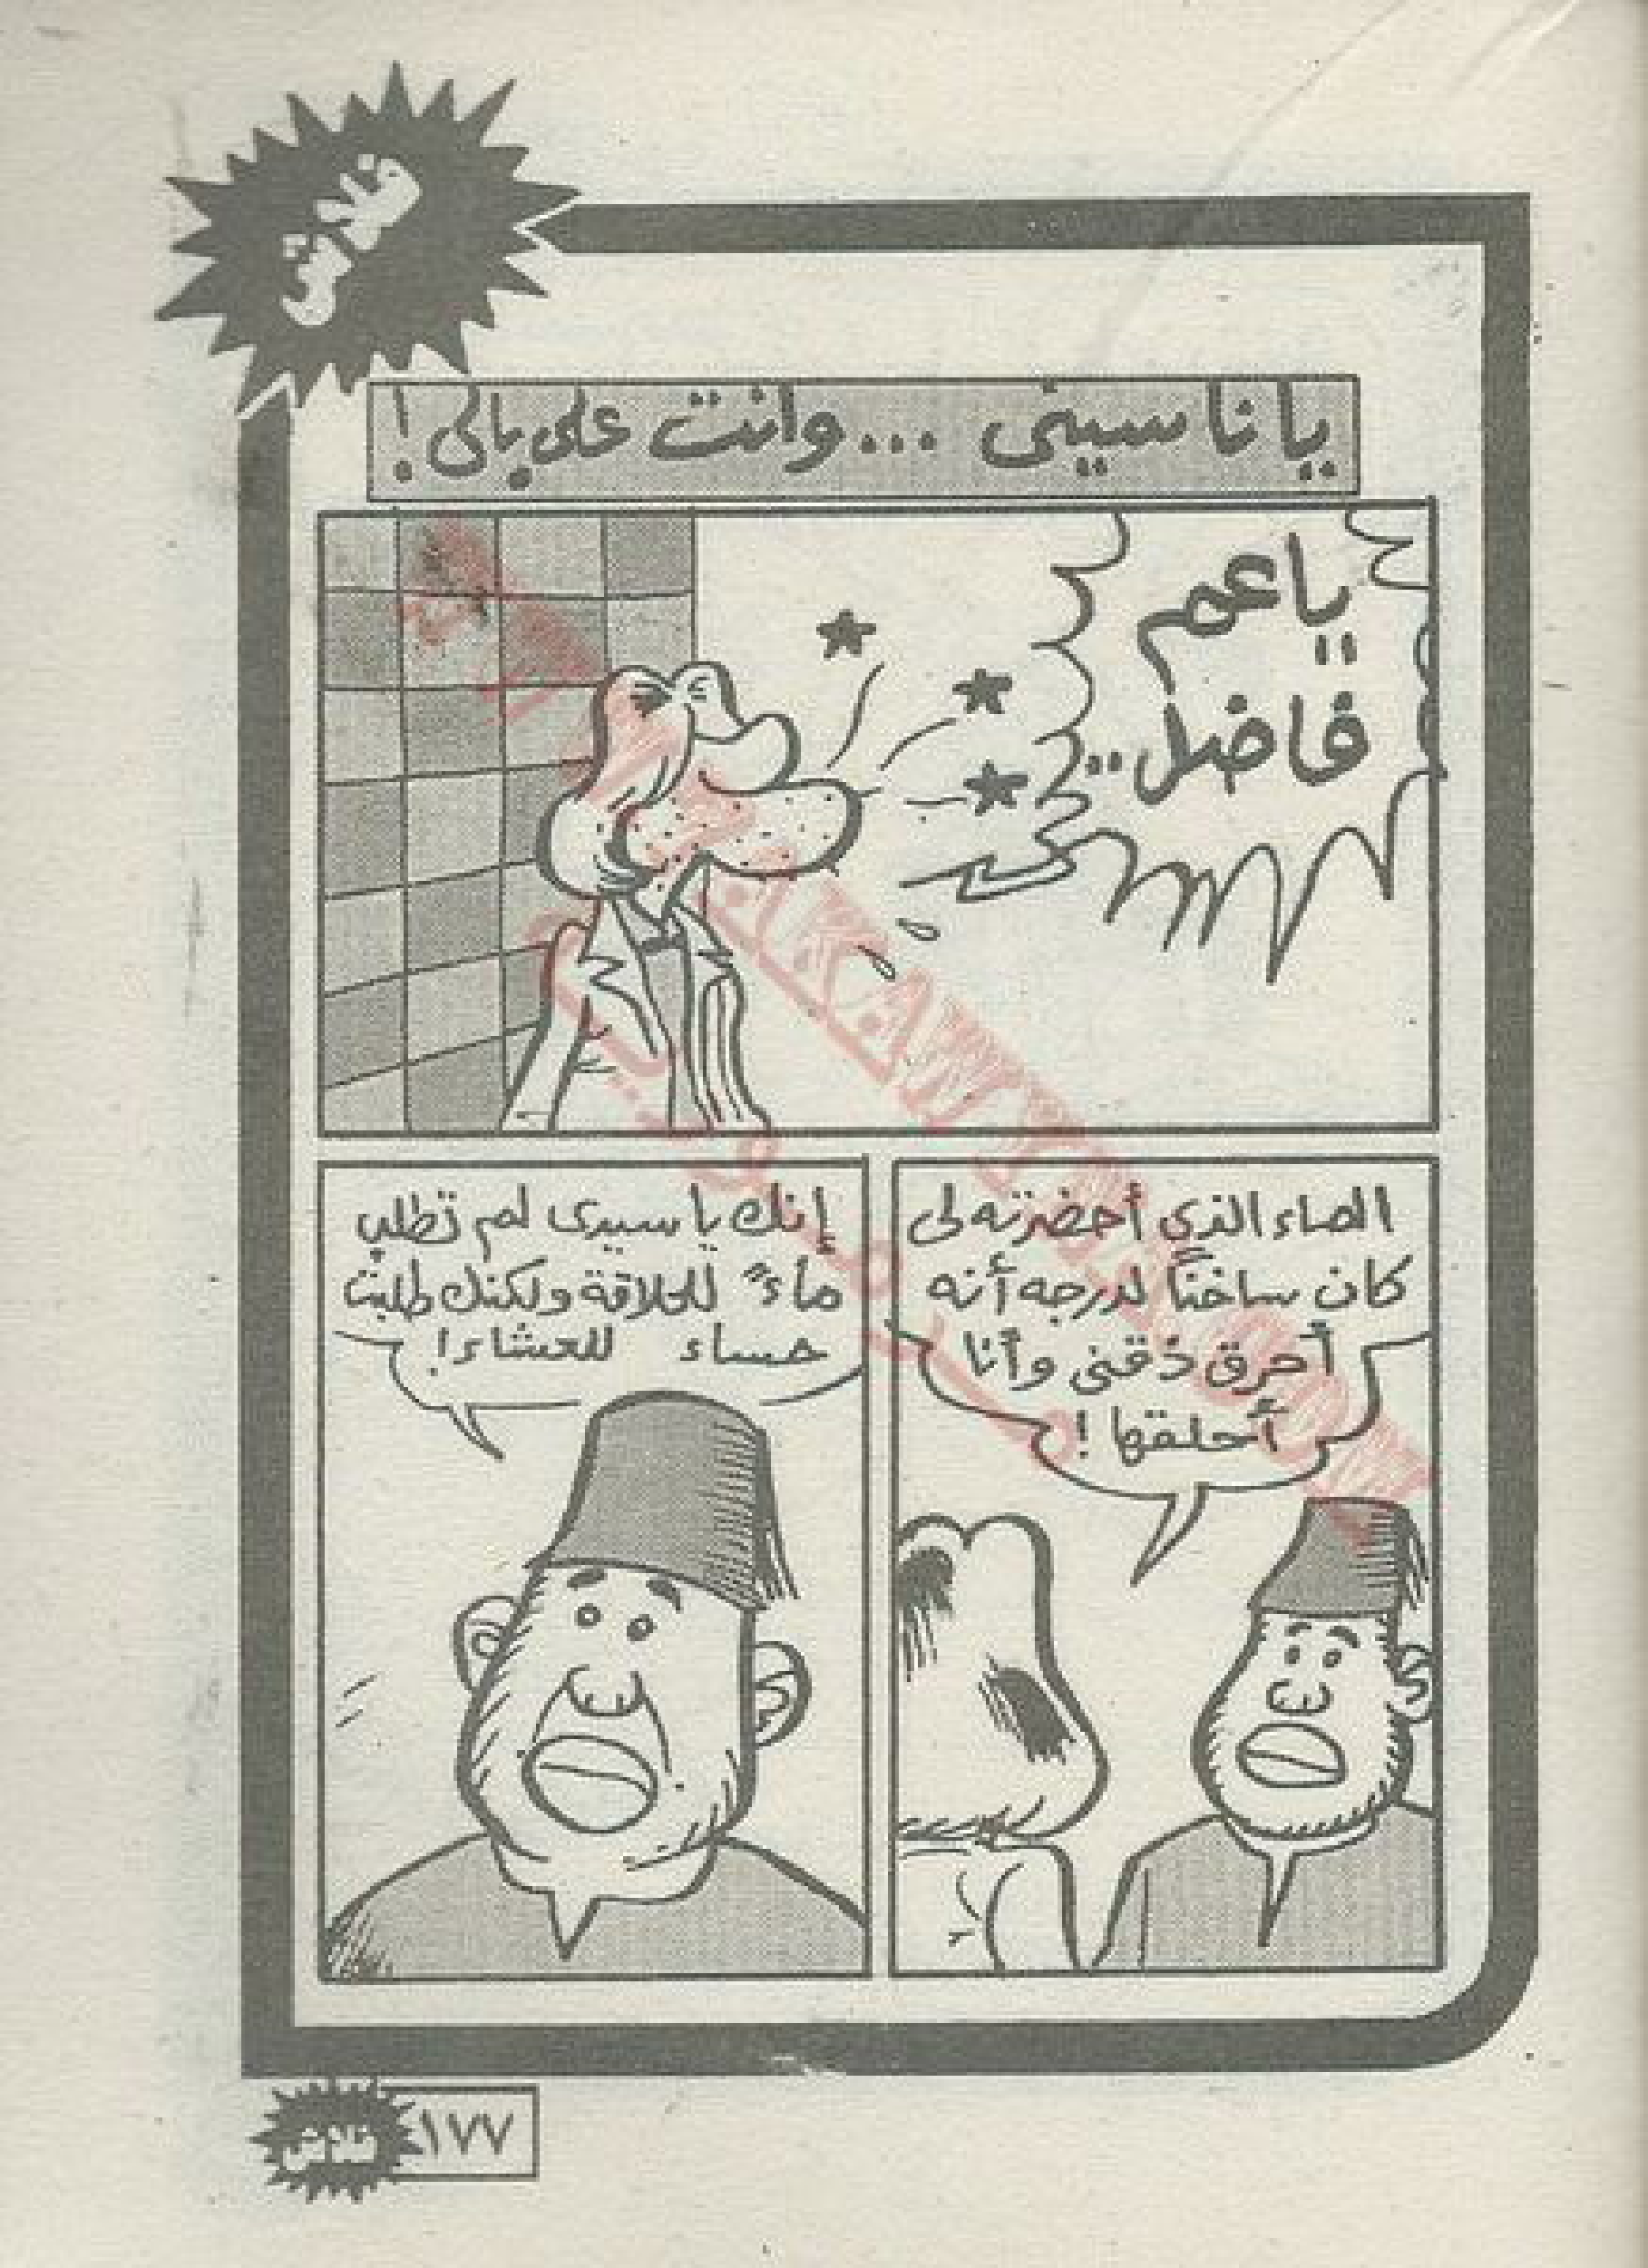 فلاش
يا ناسينى ... وانت على بالى !
يا عم
فاضل..
الماء الذي أحضرته لى
كان ساخناً لدرجه أنه
أحرق ذقنى وأنا
أحلقها !
إنك يا سيدى لم تطلب
ماءً للحلاقة ولكنك طلبت
حساء للعشاء !
فلاش ١٧٧